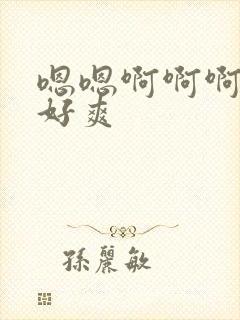 嗯嗯啊啊啊
好爽
孫麗敏